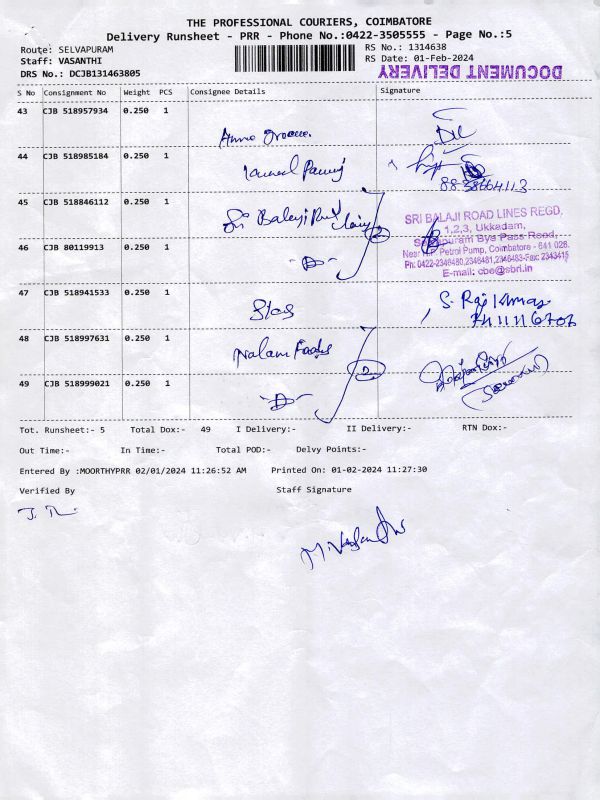 THE PROFESSIONAL COURIERS, COIMBATORE
Delivery Runsheet - PRR - Phone No.:0422-3505555 - Page No.:5
Route: SELVAPURAM
RS No.: 1314638
Staff: VASANTHI
RS Date: 01-Feb-2024
DRS No.: DCJB131463805
DOCUMENT DELIVERY
S No Consignment No Weight PCS Consignee Details Signature
43 CJB 518957934 0.250 1
44 CJB 518985184 0.250 1
8838664113
45 CJB 518846112 0.250 1 Sri Balaji
SRI BALAJI ROAD LINES REGD,
1,2,3, Ukkadam,
Bye Pass Road,
Petrol Pump, Coimbatore - 641 026.
Ph: 0422-2346480,2346481,2346483-Fax: 2343415
E-mail: cbe@sbrl.in
46 CJB 80119913 0.250 1 -D-
2
47 CJB 518941533 0.250 1
S. Raj Kumar
48 CJB 518997631 0.250 1 Nalam Foods
2
49 CJB 518999021 0.250 1 -D-
Tot. Runsheet:- 5 Total Dox:- 49 I Delivery:- II Delivery:- RTN Dox:-
Out Time:- In Time:- Total POD:- Delvy Points:-
Entered By :MOORTHYPRR 02/01/2024 11:26:52 AM Printed On: 01-02-2024 11:27:30
Verified By Staff Signature